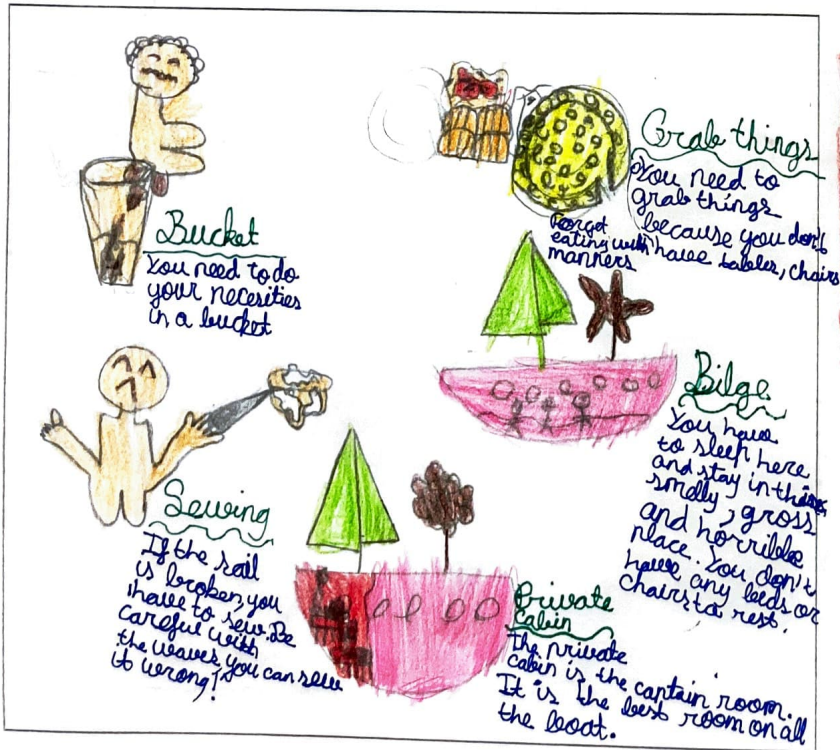 Bucket
You need to do
your necesities
in a bucket
Grab things
You need to
grab things
because you don't
have tables, chairs
Forget
eating with
manners
Bilge
You have
to sleep here
and stay in this
smelly, gross
and horrible
place. You don't
have any beds or
chairs to rest.
Sewing
If the sail
is broken, you
have to sew. Be
careful with
the waves, you can sew
it wrong!
Private
cabin
The private
cabin is the captain room.
It is the best room on all
the boat.